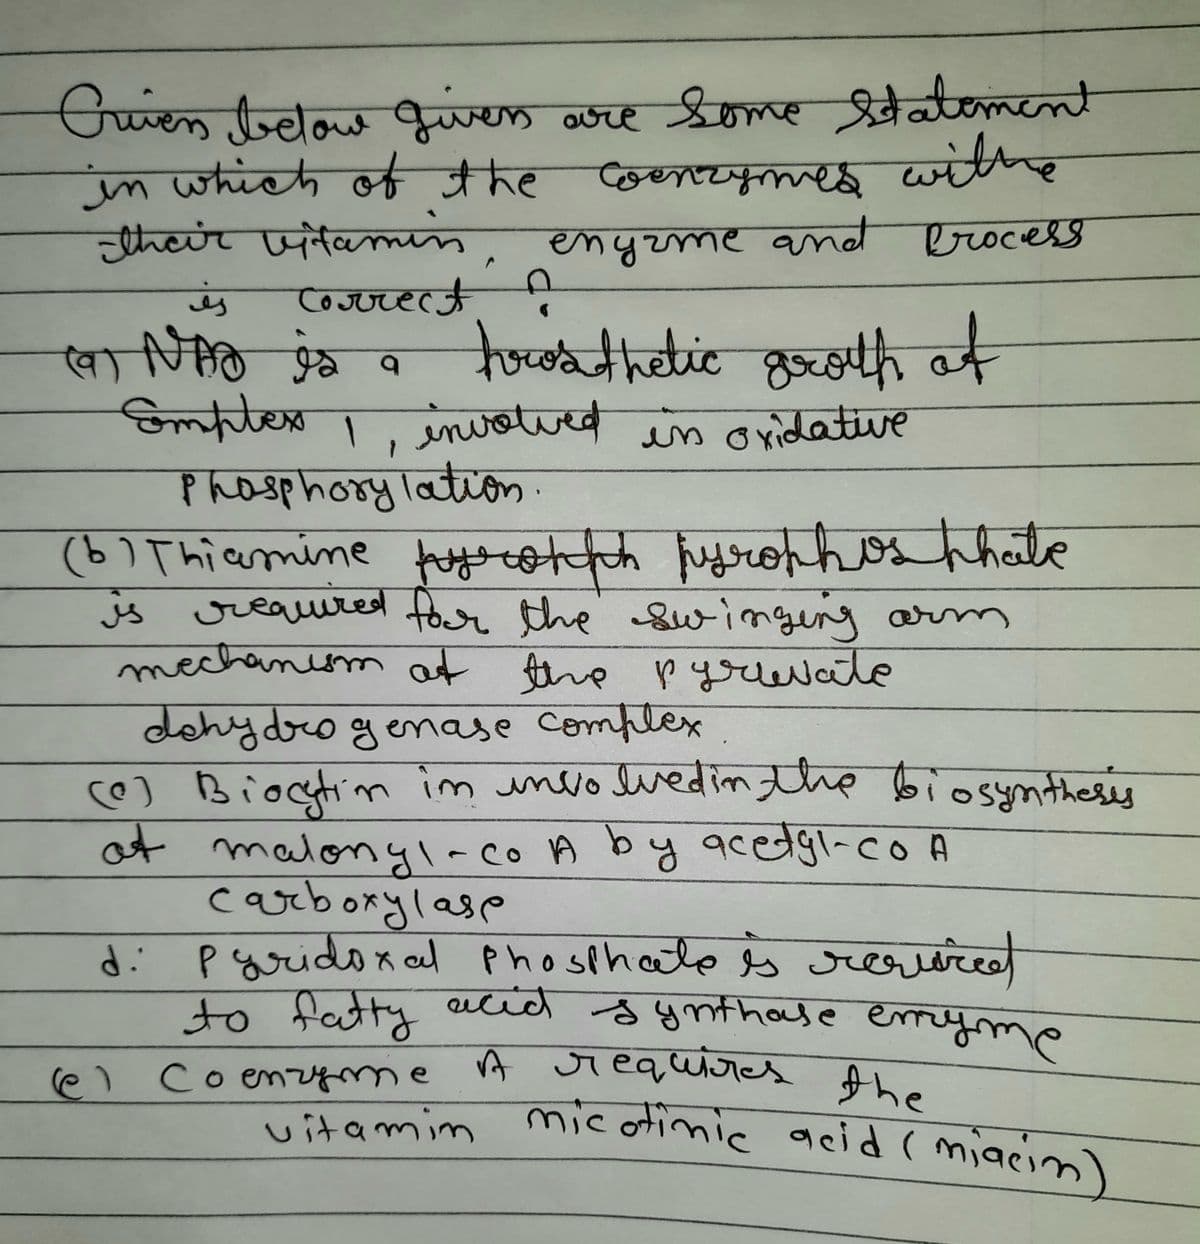 Given below given are Some Statement
in which of the Coenzymes withe
their vitamin, enyzme and Process
is Correct ?
(a) NAD is a prosthetic group of
Complex 1, involved in oxidative
Phosphorylation.
(b) Thiamine pyrophosphate
is required for the swinging arm
mechanism of the pyruvate
dehydrogenase complex.
(c) Biocytin in involvedin the biosynthesis
of malonyl-co A by acetyl-co A
carboxylase
d: Pyridoxal Phosphate is required
to fatty acid synthase enzyme
(e) Coenzyme A requires the
vitamin nicotinic acid (niacin)